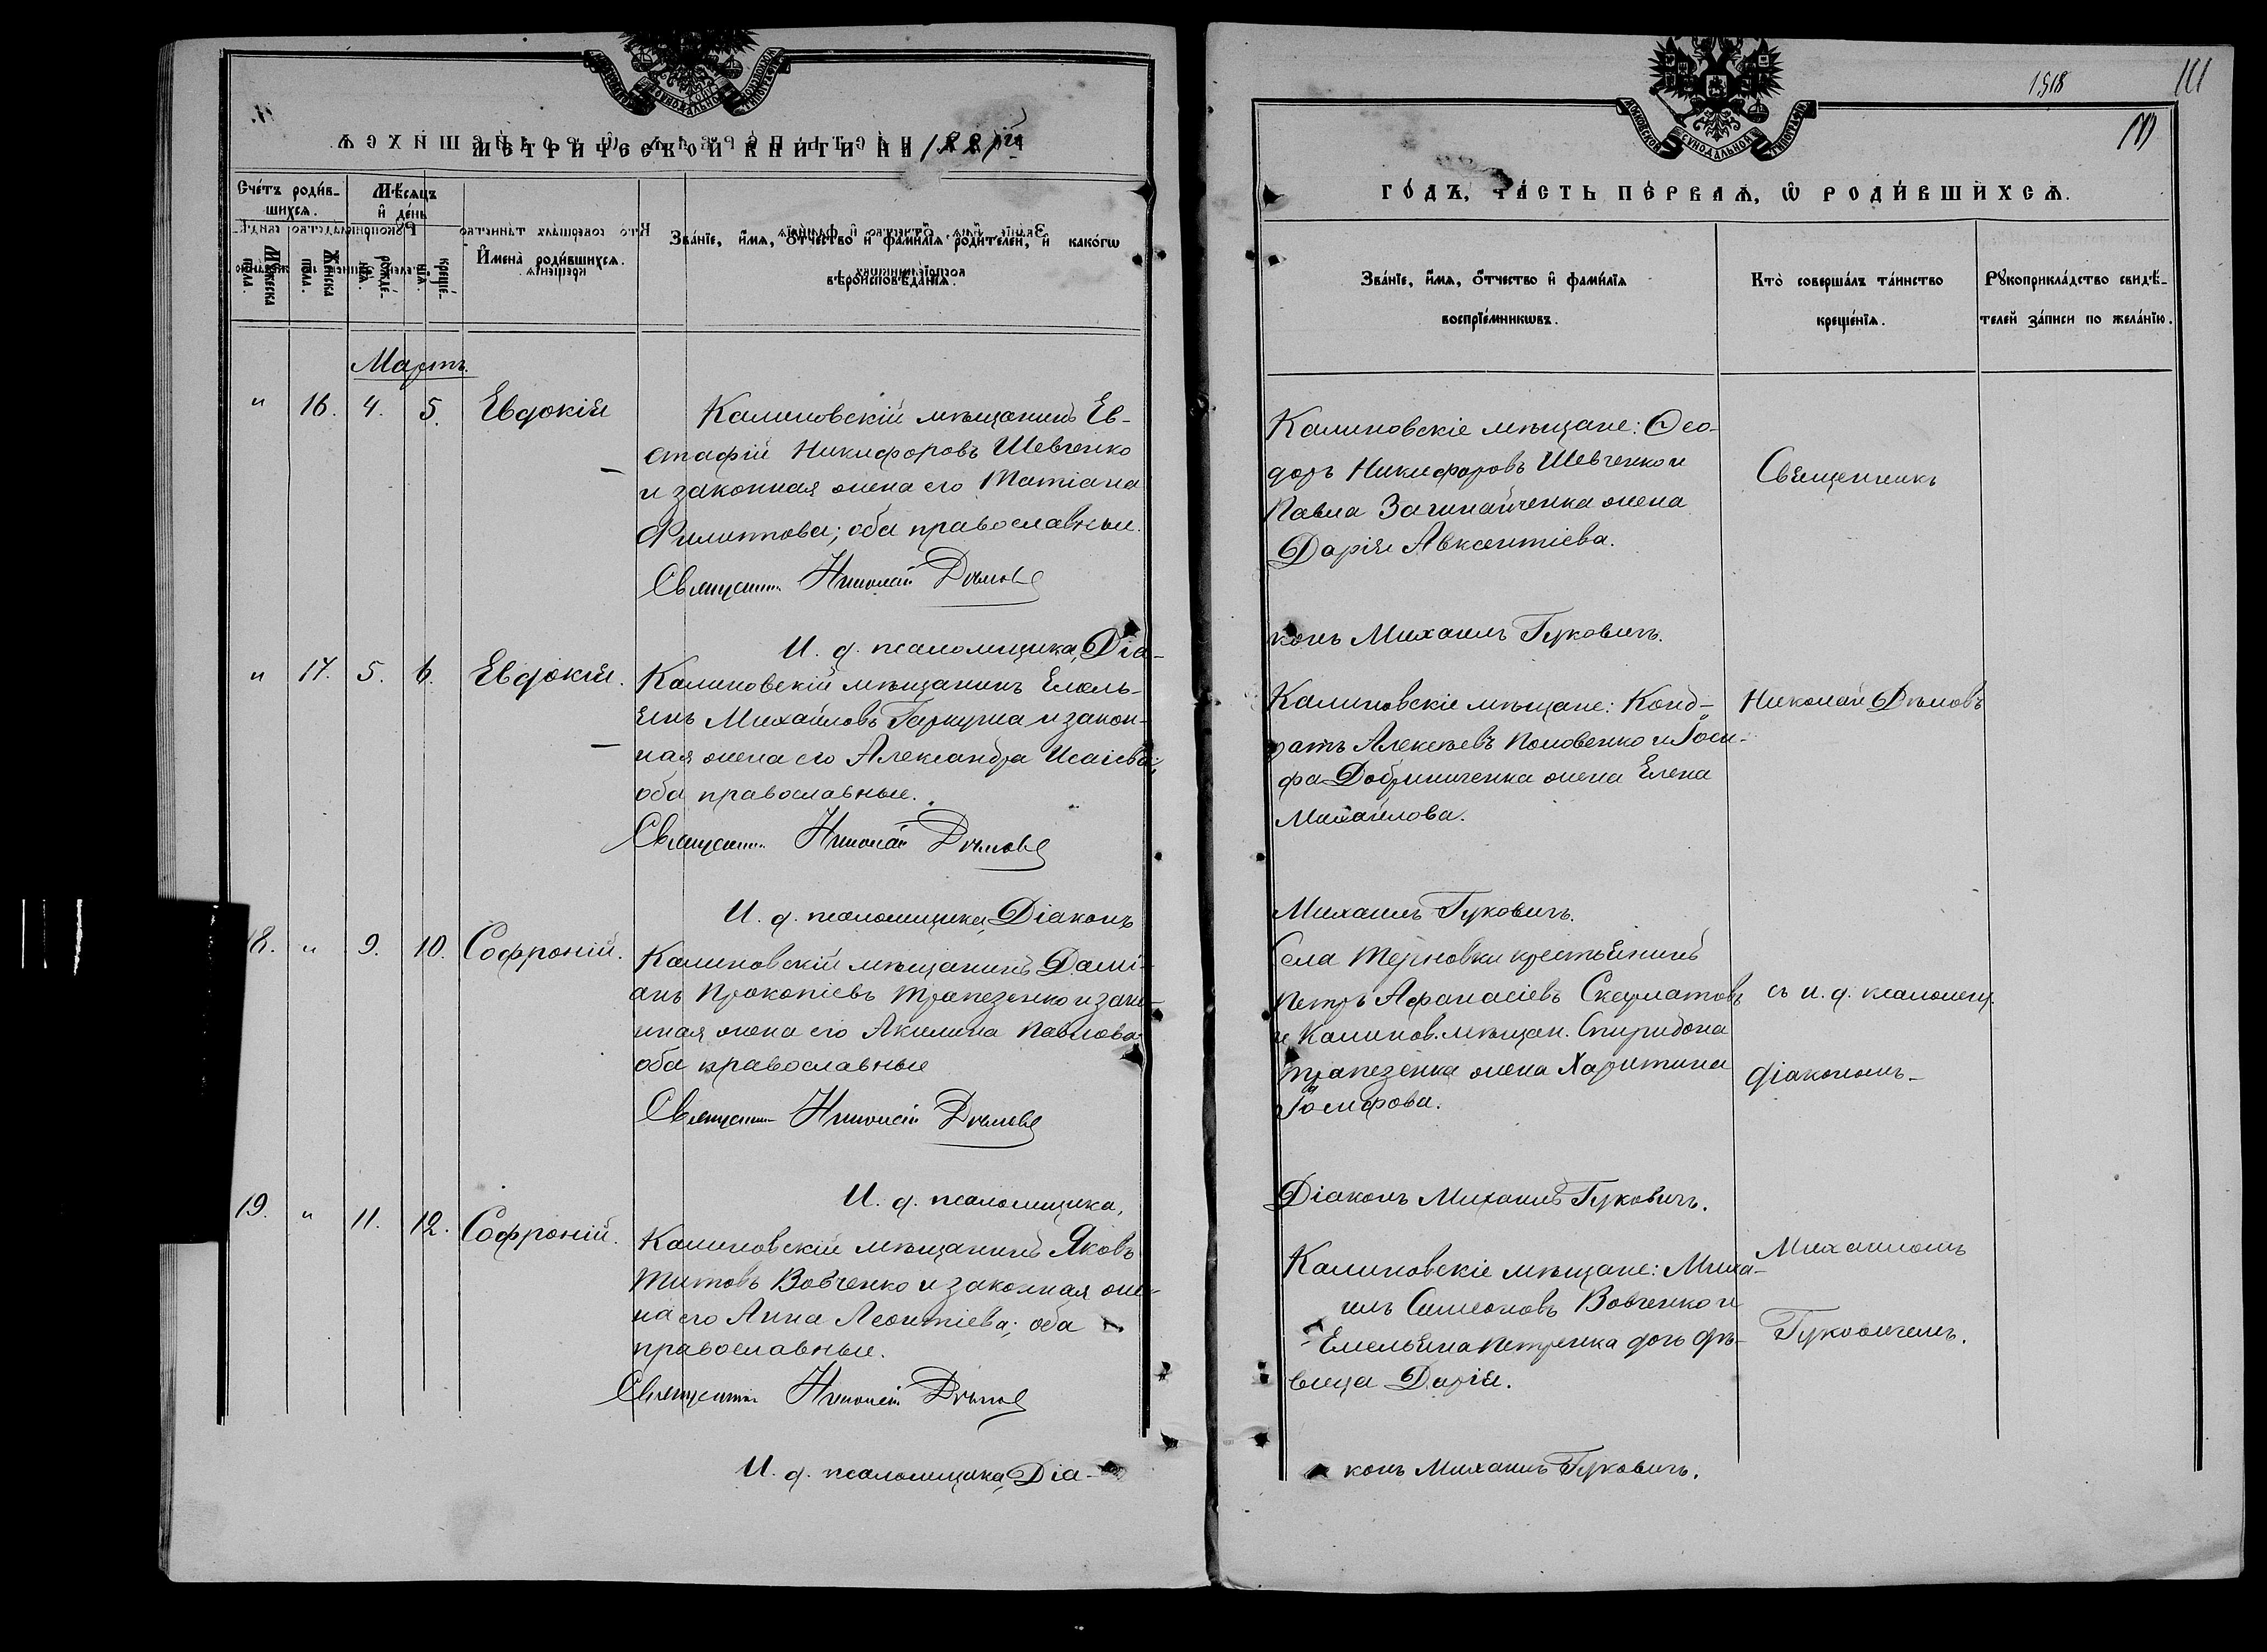 МЕТРИЧЕСКОЙ КНИГИ НА 1881й
Счетъ родив-
шихся.
Мѣсяцъ
и день
Мужеска
пола.
Женска
пола.
рожде-
нія.
креще-
нія.
Имена родившихся.
Званіе, имя, отчество и фамилія родителей, и какого
вѣроисповѣданія.
Мартъ.
" 16. 4. 5. Евдокія
Калиновскій мѣщанинъ Ев-
стафій Никифоровъ Шевченко
и законная жена его Татіана
Филиппова; оба православные.
Священникъ Николай Дѣмовъ
И. д. псаломщика, Діа-
" 17. 5. 6. Евдокія.
Калиновскій мѣщанинъ Емель-
янъ Михайловъ Гаркуша и закон-
ная жена его Александра Исаіева;
оба православные.
Священникъ Николай Дѣмовъ
И. д. псаломщика, Діаконъ
18. " 9. 10. Софроній.
Калиновскій мѣщанинъ Дамі-
анъ Прокопіевъ Трапезенко и зако-
нная жена его Акилина Павлова
оба православные
Священникъ Николай Дѣмовъ
И. д. псаломщика,
19. " 11. 12. Софроній.
Калиновскій мѣщанинъ Яковъ
Титовъ Вовченко и законная же-
на его Анна Леонтіева; оба
православные.
Священникъ Николай Дѣмовъ
И. д. псаломщика, Діа-
1518
111
МОСКОВСКОЙ СУНОДАЛЬНОЙ ТИПОГРАФІИ
ГОДЪ, ЧАСТЬ ПЕРВАЯ, Ѡ РОДИВШИХСЯ.
Званіе, имя, отчество и фамилія
воспріемниковъ.
Кто совершалъ таинство
крещенія.
Рукоприкладство свидѣ-
телей записи по желанію.
Калиновскіе мѣщане: Ѳео-
доръ Никифоровъ Шевченко и
Павла Загинайченка жена
Дарія Авксентіева.
Священникъ
конъ Михаилъ Гуковичъ.
Калиновскіе мѣщане: Конд-
ратъ Алексѣевъ Половенко и Іоси-
фа Добриниченка жена Елена
Михайлова.
Николай Дѣмовъ
Михаилъ Гуковичъ.
Села Терновки крестьянинъ
Петръ Афанасіевъ Скурматовъ
и Калинов. мѣщан. Спиридона
Трапезенка жена Харитина
Іосифова.
съ и. д. псаломщ.
діакономъ
Діаконъ Михаилъ Гуковичъ.
Калиновскіе мѣщане: Миха-
илъ Симеоновъ Вовченко и
Емельяна Петренка дочь дѣ-
вица Дарія.
Михаиломъ
Гуковичемъ.
конъ Михаилъ Гуковичъ.